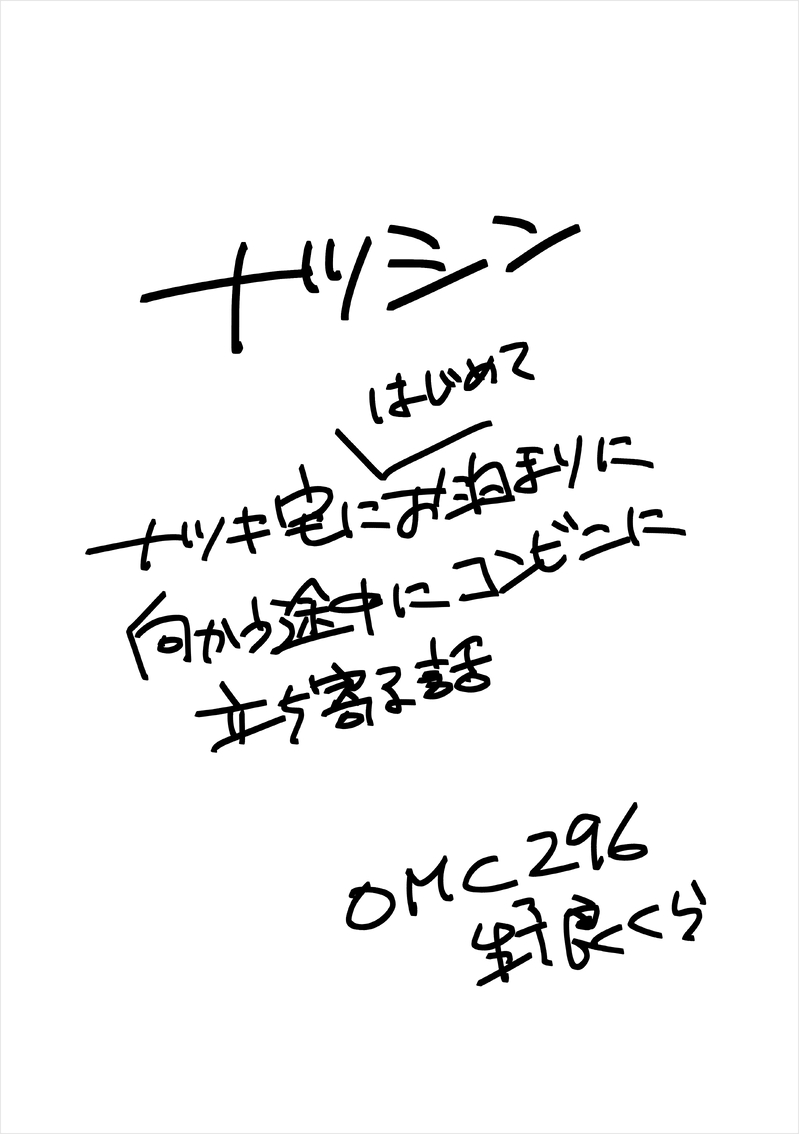 ナツシン
はじめて
ナツキ宅にお泊まりに
向かう途中にコンビニに
立ち寄る話
OMC296
野良くら